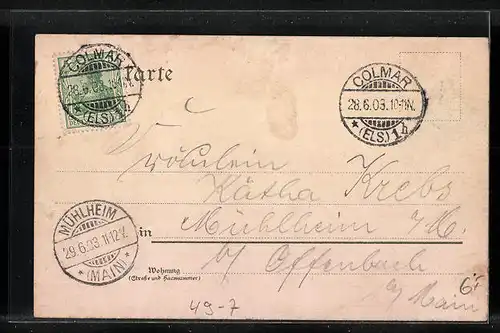 COLMAR
28.6.03.
*(ELS)1h
Karte
COLMAR
28.6.03.10-11N.
*(ELS)1h
Fräulein
Kätha Krebs
in Mühlheim a/M.
b/ Offenbach
a/ Main
MÜHLHEIM
29.6.03.11-12V.
*(MAIN)*
Wohnung
(Straße und Hausnummer)
49-7